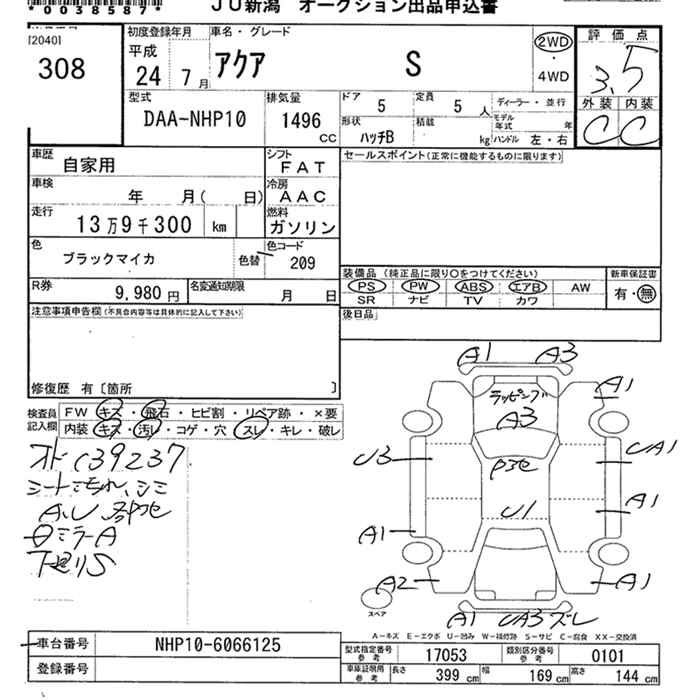 *00385874*
JU新潟 オークション出品申込書
[2040]
308
初度登録年月
平成
24年 7月
車名・グレード
アクア S
2WD
・
4WD
評価点
3.5
外装 内装
C C
型式
DAA-NHP10
排気量
1496 CC
ドア 5
定員 5人
ディーラー・並行
形状 ハッチB
積載 kg
モデル年式 年
ハンドル 左・右
車歴 自家用
シフト FAT
セールスポイント(正常に機能するものに限ります)
車検 年 月( 日)
冷房 AAC
走行 13万9千300 km
燃料 ガソリン
色 ブラックマイカ 色替
色コード 209
装備品(純正品に限り○をつけてください)
新車保証書
PS PW ABS エアB AW
SR ナビ TV カワ
有・無
R券 9,980円
名変通知期限 月 日
注意事項申告欄(不具合内容等は具体的に記入して下さい)
後日品
修復歴 有〔箇所 〕
検査員記入欄
FW キズ・飛石・ヒビ割・リペア跡・×要
内装 キズ・汚レ・コゲ・穴・スレ・キレ・破レ
C39237
シートこすれ、シミ
ミラーA
下廻りS
A1 A3
ラッピング
A3
A1
U3
UA1
U1
A1
A1
A2
A1
スペア
A1 UA3 ズレ
A-キズ E-エクボ U-凹み W-補修跡 S-サビ C-腐食 XX-交換済
車台番号 NHP10-6066125
登録番号
型式指定番号 参考 17053
類別区分番号 参考 0101
車庫証明用 参考 長さ 399 cm 幅 169 cm 高さ 144 cm